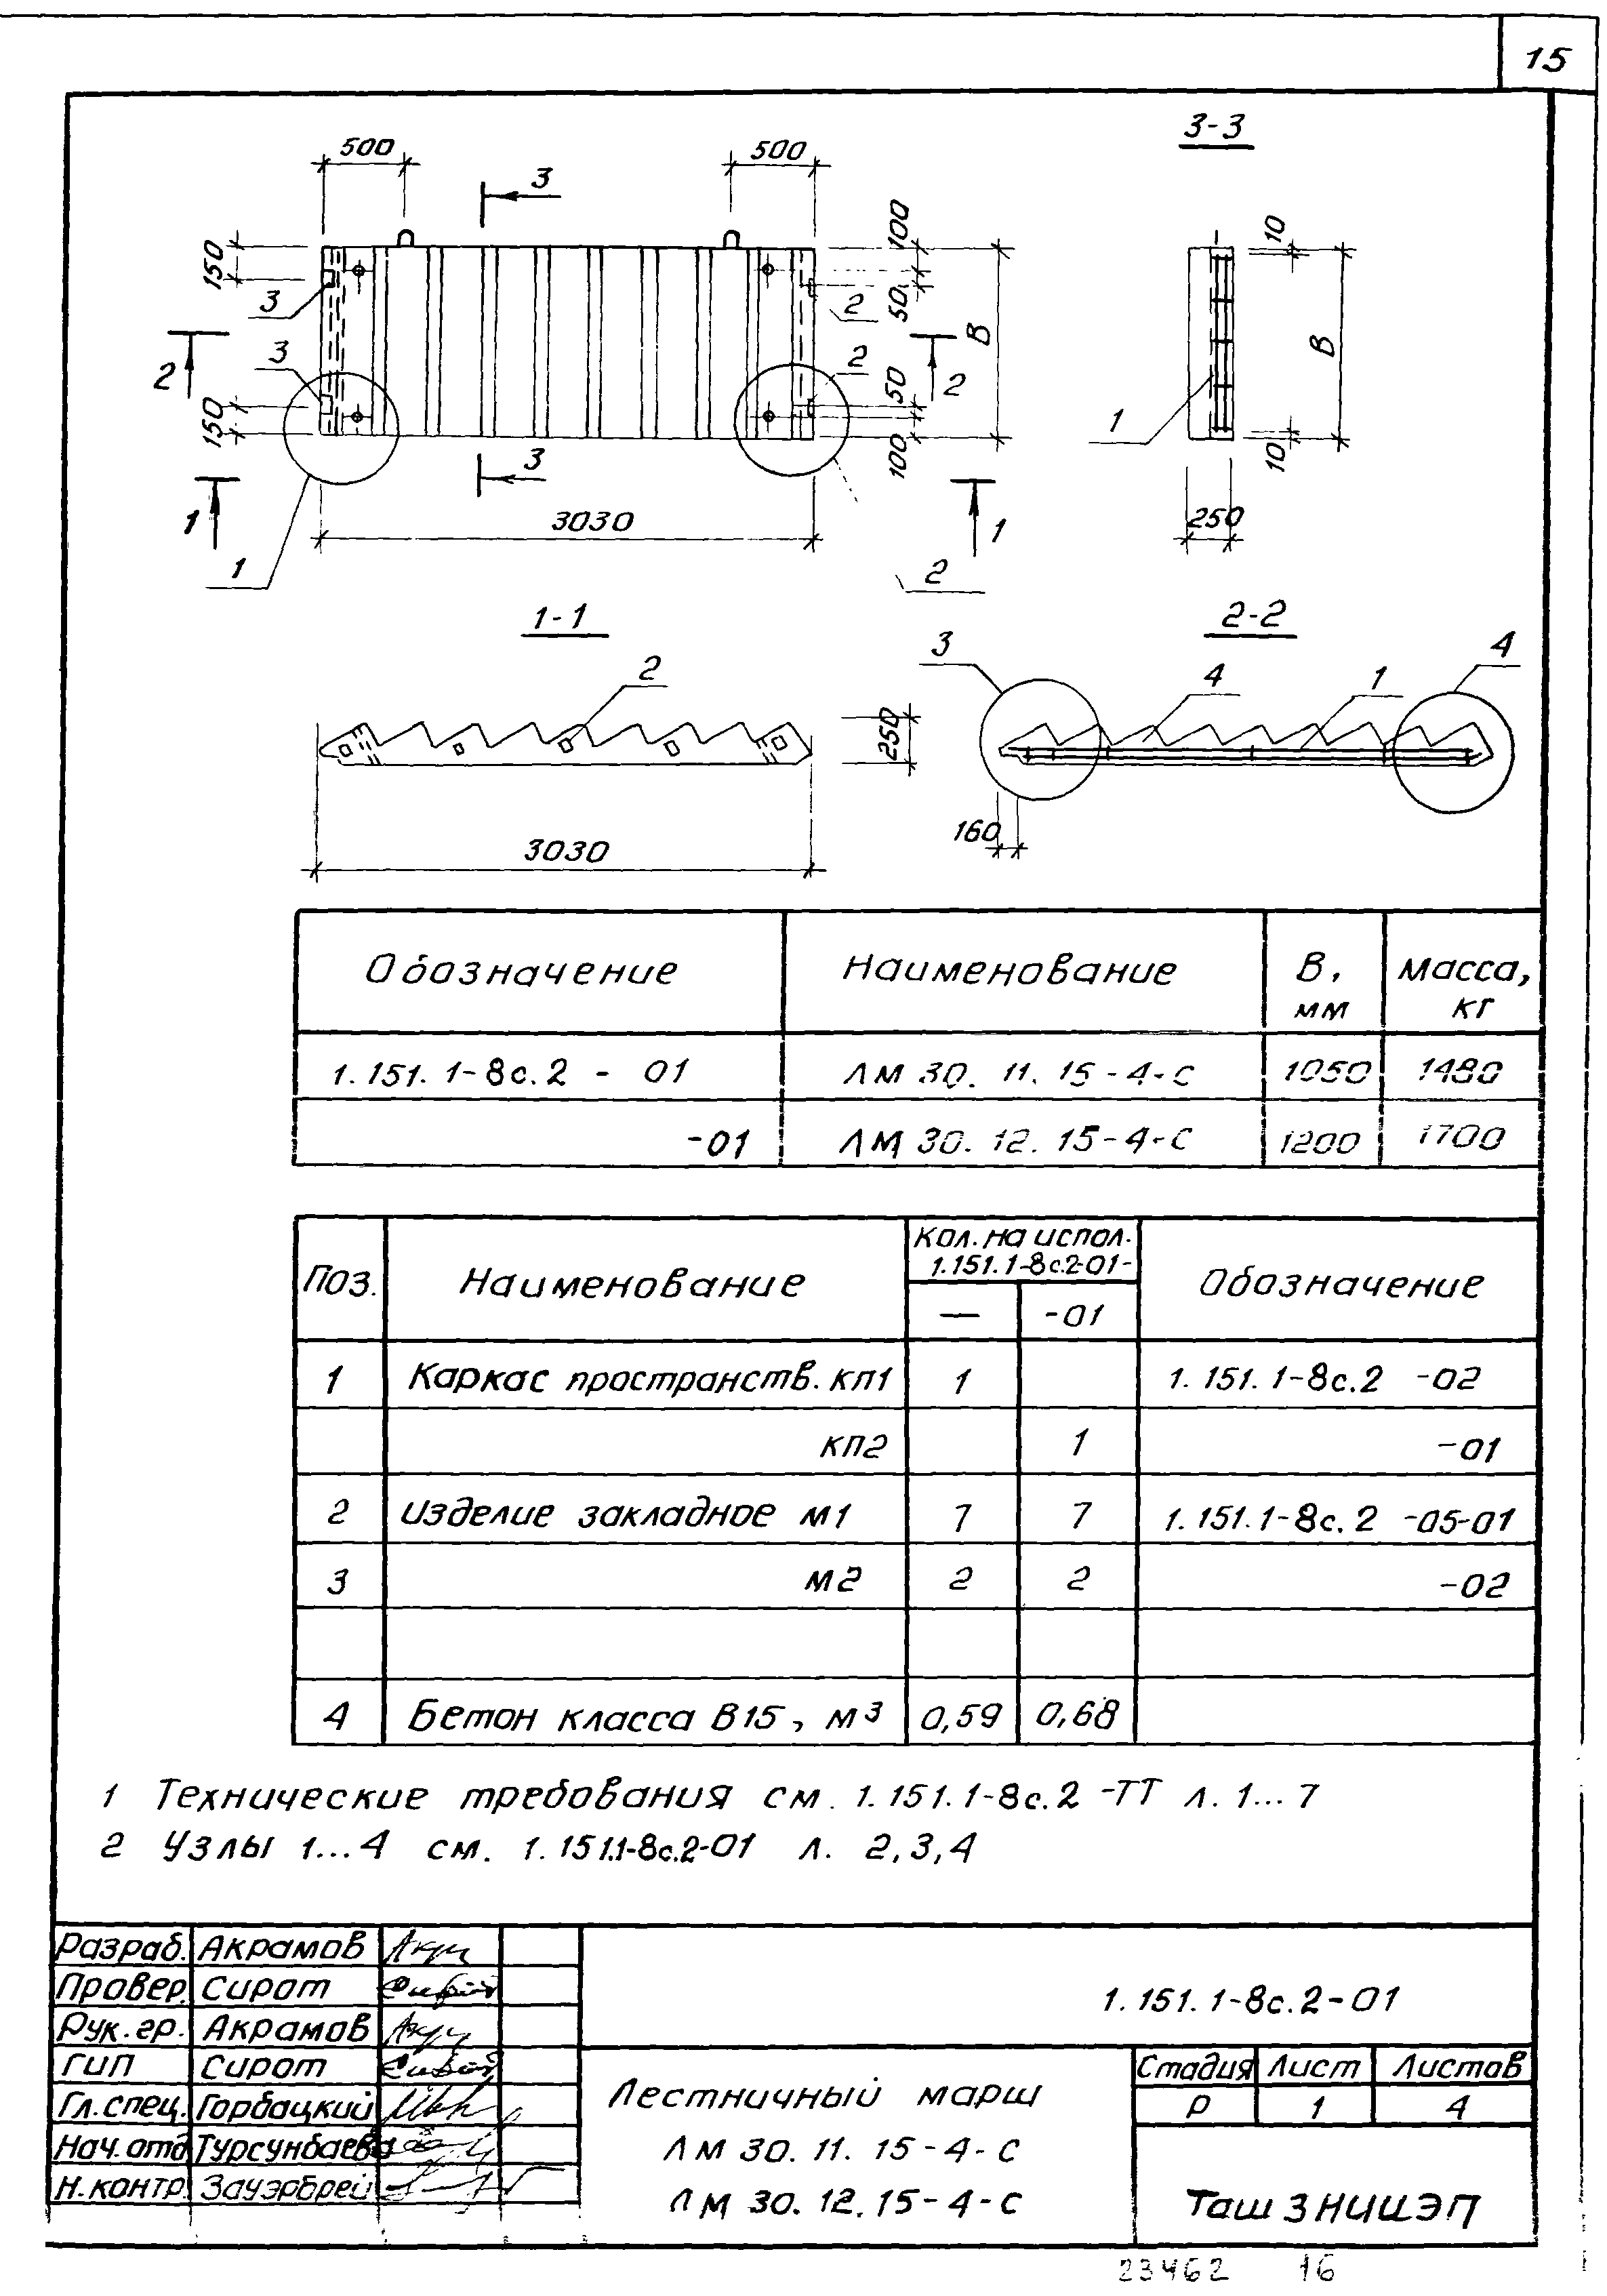 15
500
500
3-3
3
150
100
50
10
3
2
В
В
2
3
2
50
2
1
150
3
100
10
1
3030
1
250
1
2
1-1
2-2
3
4
2
4
1
250
160
3030
Обозначение Наименование В, мм Масса, кг
1.151.1-8с.2 - 01 ЛМ 30.11.15-4-С 1050 1480
-01 ЛМ 30.12.15-4-С 1200 1700
Поз. Наименование Кол. на испол. 1.151.1-8с.2-01- Обозначение
— -01
1 Каркас пространств. КП1 1 1.151.1-8с.2 -02
КП2 1 -01
2 Изделие закладное М1 7 7 1.151.1-8с.2 -05-01
3 М2 2 2 -02
4 Бетон класса В15, м³ 0,59 0,68
1 Технические требования см. 1.151.1-8с.2 -ТТ л. 1...7
2 Узлы 1...4 см. 1.151.1-8с.2-01 л. 2,3,4
Разраб. Акрамов
Провер. Сирот
Рук. гр. Акрамов
ГИП Сирот
Гл. спец. Горбацкий
Нач. отд Турсунбаева
Н. контр. Зауэрбрей
1.151.1-8с.2-01
Лестничный марш
ЛМ 30.11.15-4-С
ЛМ 30.12.15-4-С
Стадия Лист Листов
Р 1 4
Таш ЗНИИЭП
23462 16